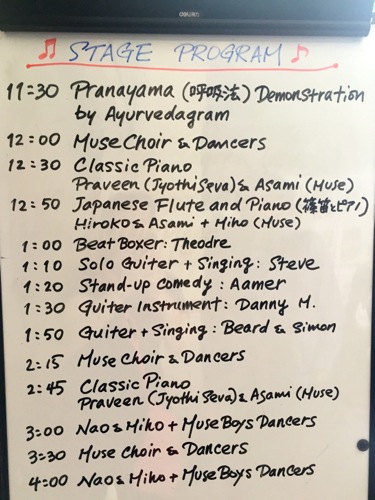 deli
♫ STAGE PROGRAM ♪
11:30 Pranayama (呼吸法) Demonstration
by Ayurvedagram
12:00 Muse Choir & Dancers
12:30 Classic Piano
Praveen (Jyothi Seva) & Asami (Muse)
12:50 Japanese Flute and Piano (篠笛とピアノ)
Hiroko & Asami + Miho (Muse)
1:00 Beat Boxer: Theodre
1:10 Solo Guiter + Singing: Steve
1:20 Stand-up comedy: Aamer
1:30 Guiter Instrument: Danny M.
1:50 Guiter + Singing: Beard & Simon
2:15 Muse Choir & Dancers
2:45 Classic Piano
Praveen (Jyothi Seva) & Asami (Muse)
3:00 Nao & Miho + Muse Boys Dancers
3:30 Muse Choir & Dancers
4:00 Nao & Miho + Muse Boys Dancers